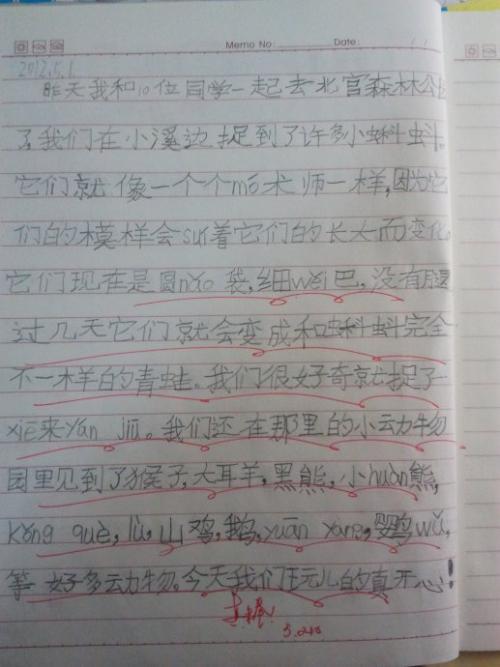 Memo No: Date:
2012.5.1
昨天我和10位同学一起去北宫森林公
了,我们在小溪边捉到了许多小蝌蚪。
它们就像一个个mó术师一样,因为它
们的模样会suí着它们的长大而变化。
它们现在是圆nǎo袋,细wěi巴,没有腿
过几天它们就会变成和蝌蚪完全
不一样的青蛙。我们很好奇就捉了
xiē来yán jiū。我们还在那里的小动物
园里见到了猴子,大耳羊,黑熊,小huàn熊,
kǒng què,lǜ,山鸡,鹅,yuān yang,鹦wǔ,
等好多动物。今天我们玩儿的真开心!